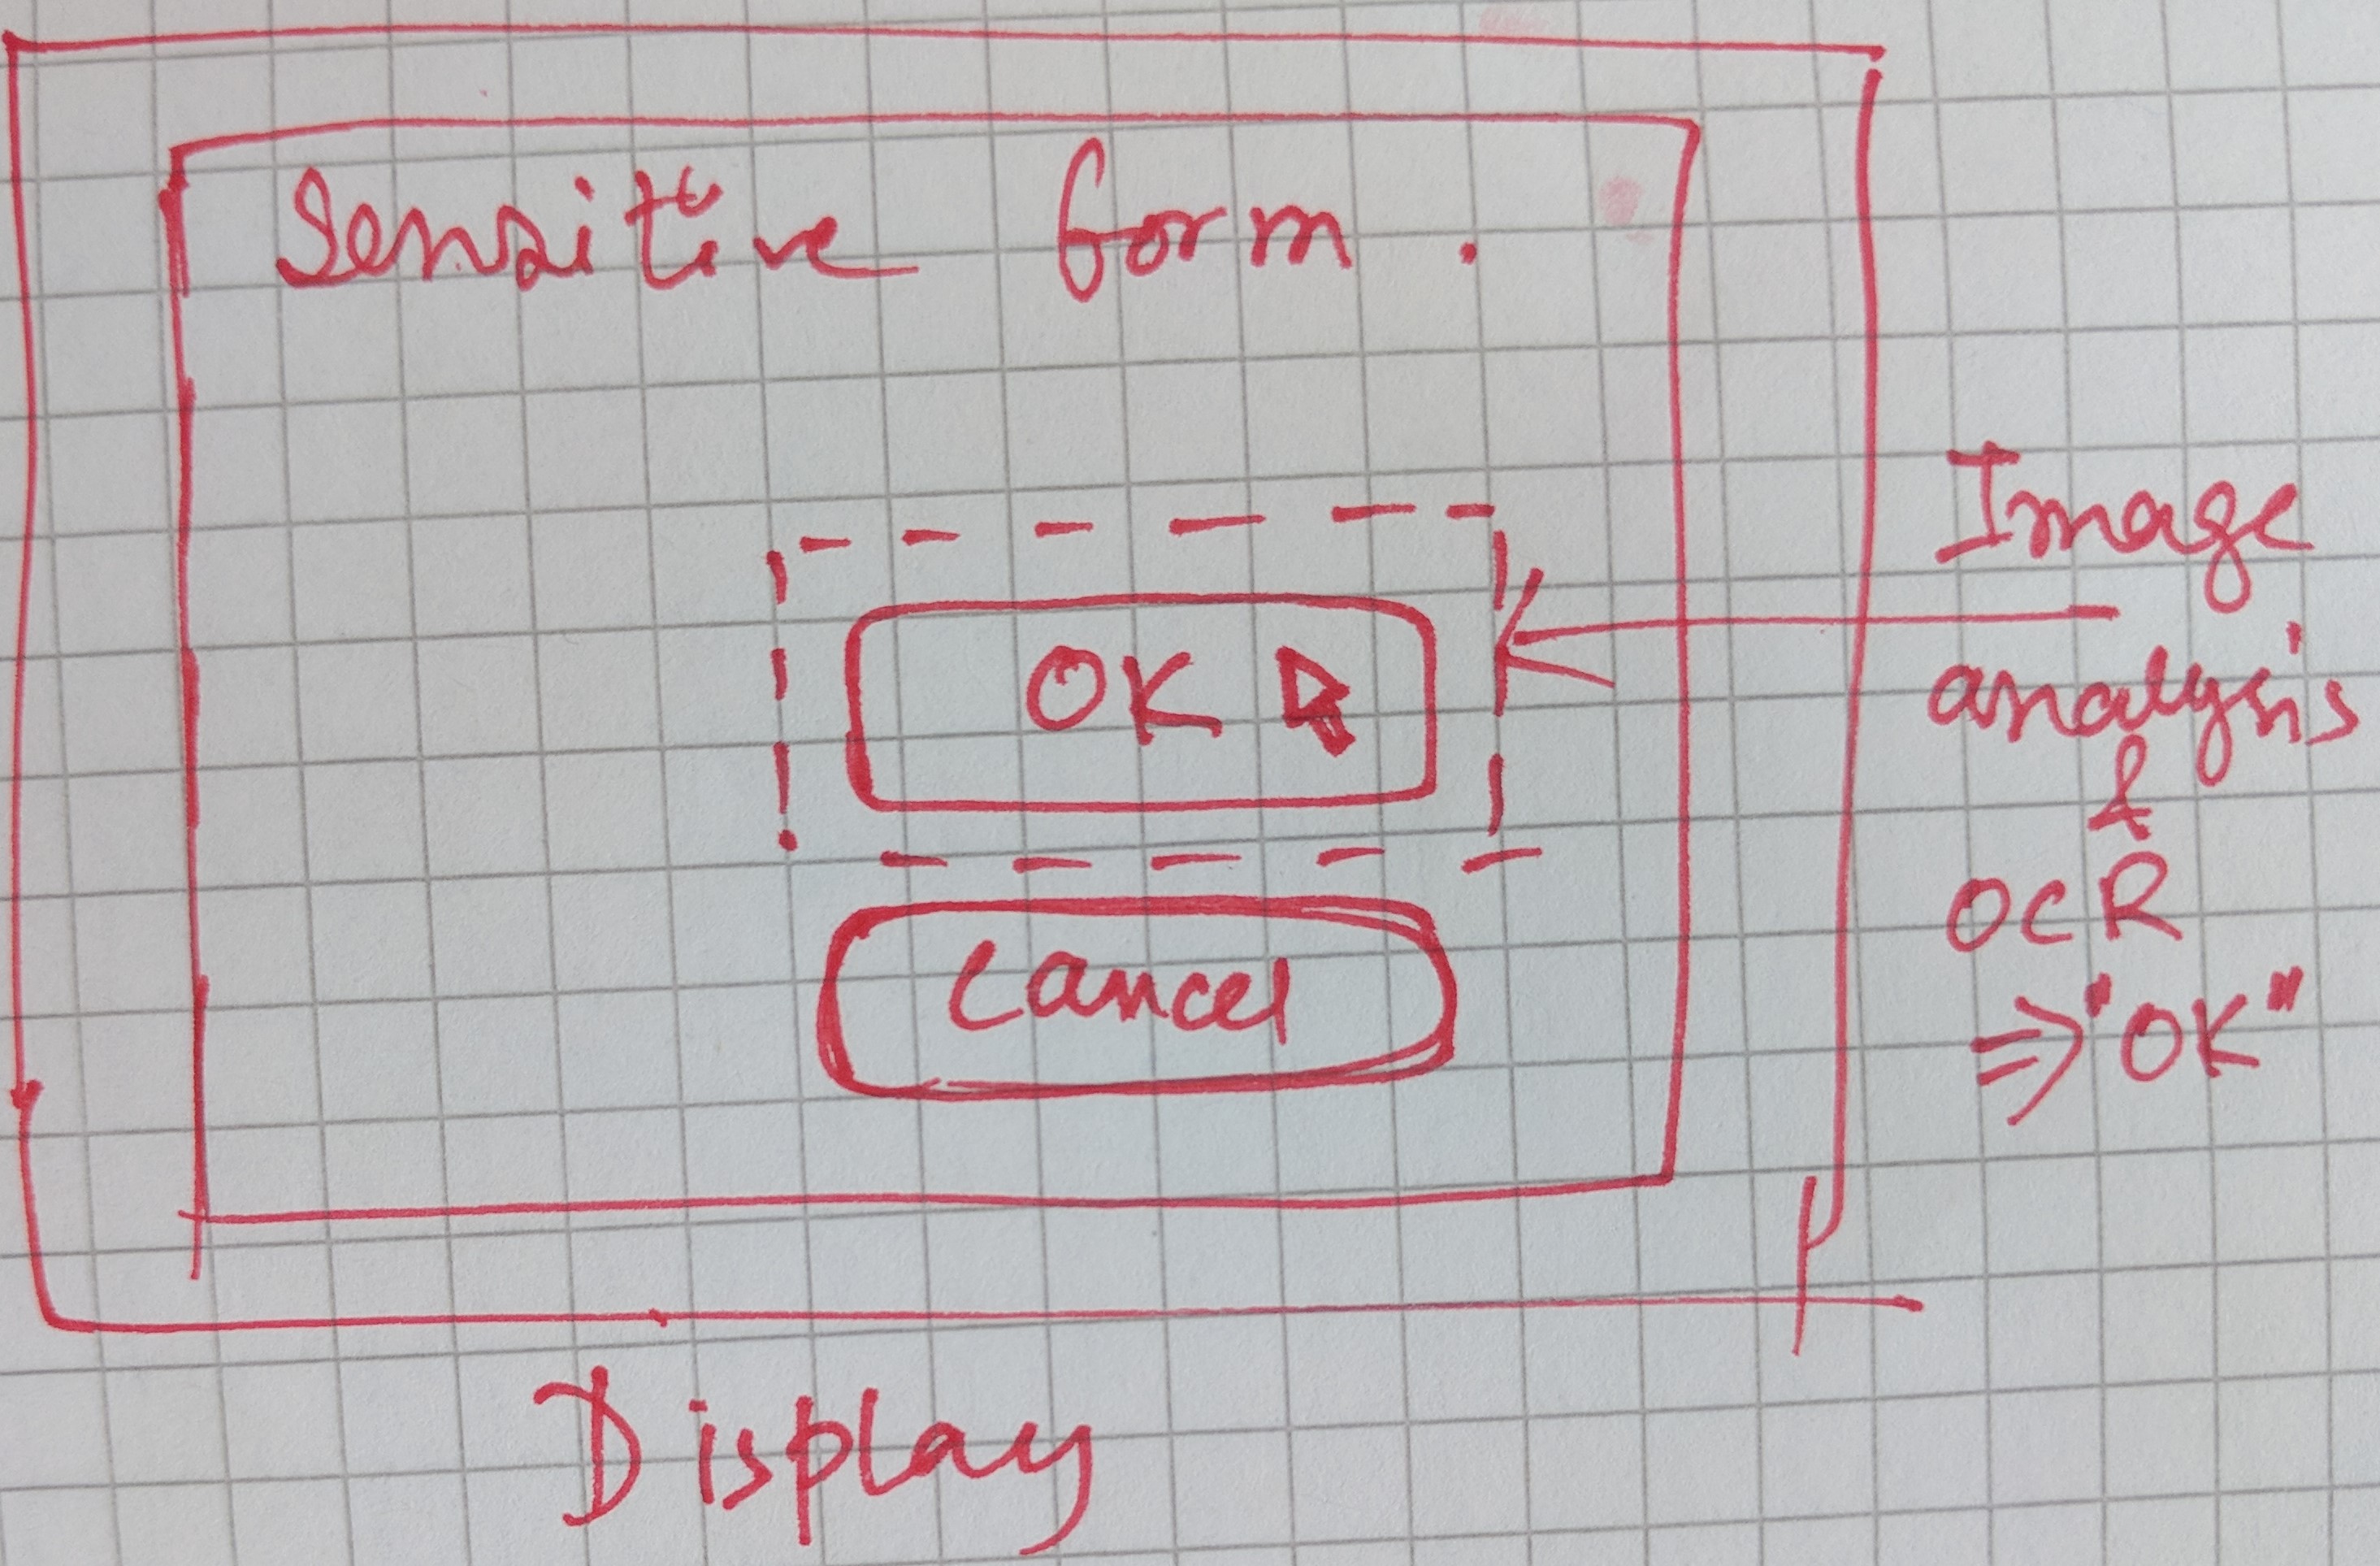 Sensitive form.
OK
Cancel
Image
analysis
&
OCR
⇒ "OK"
Display